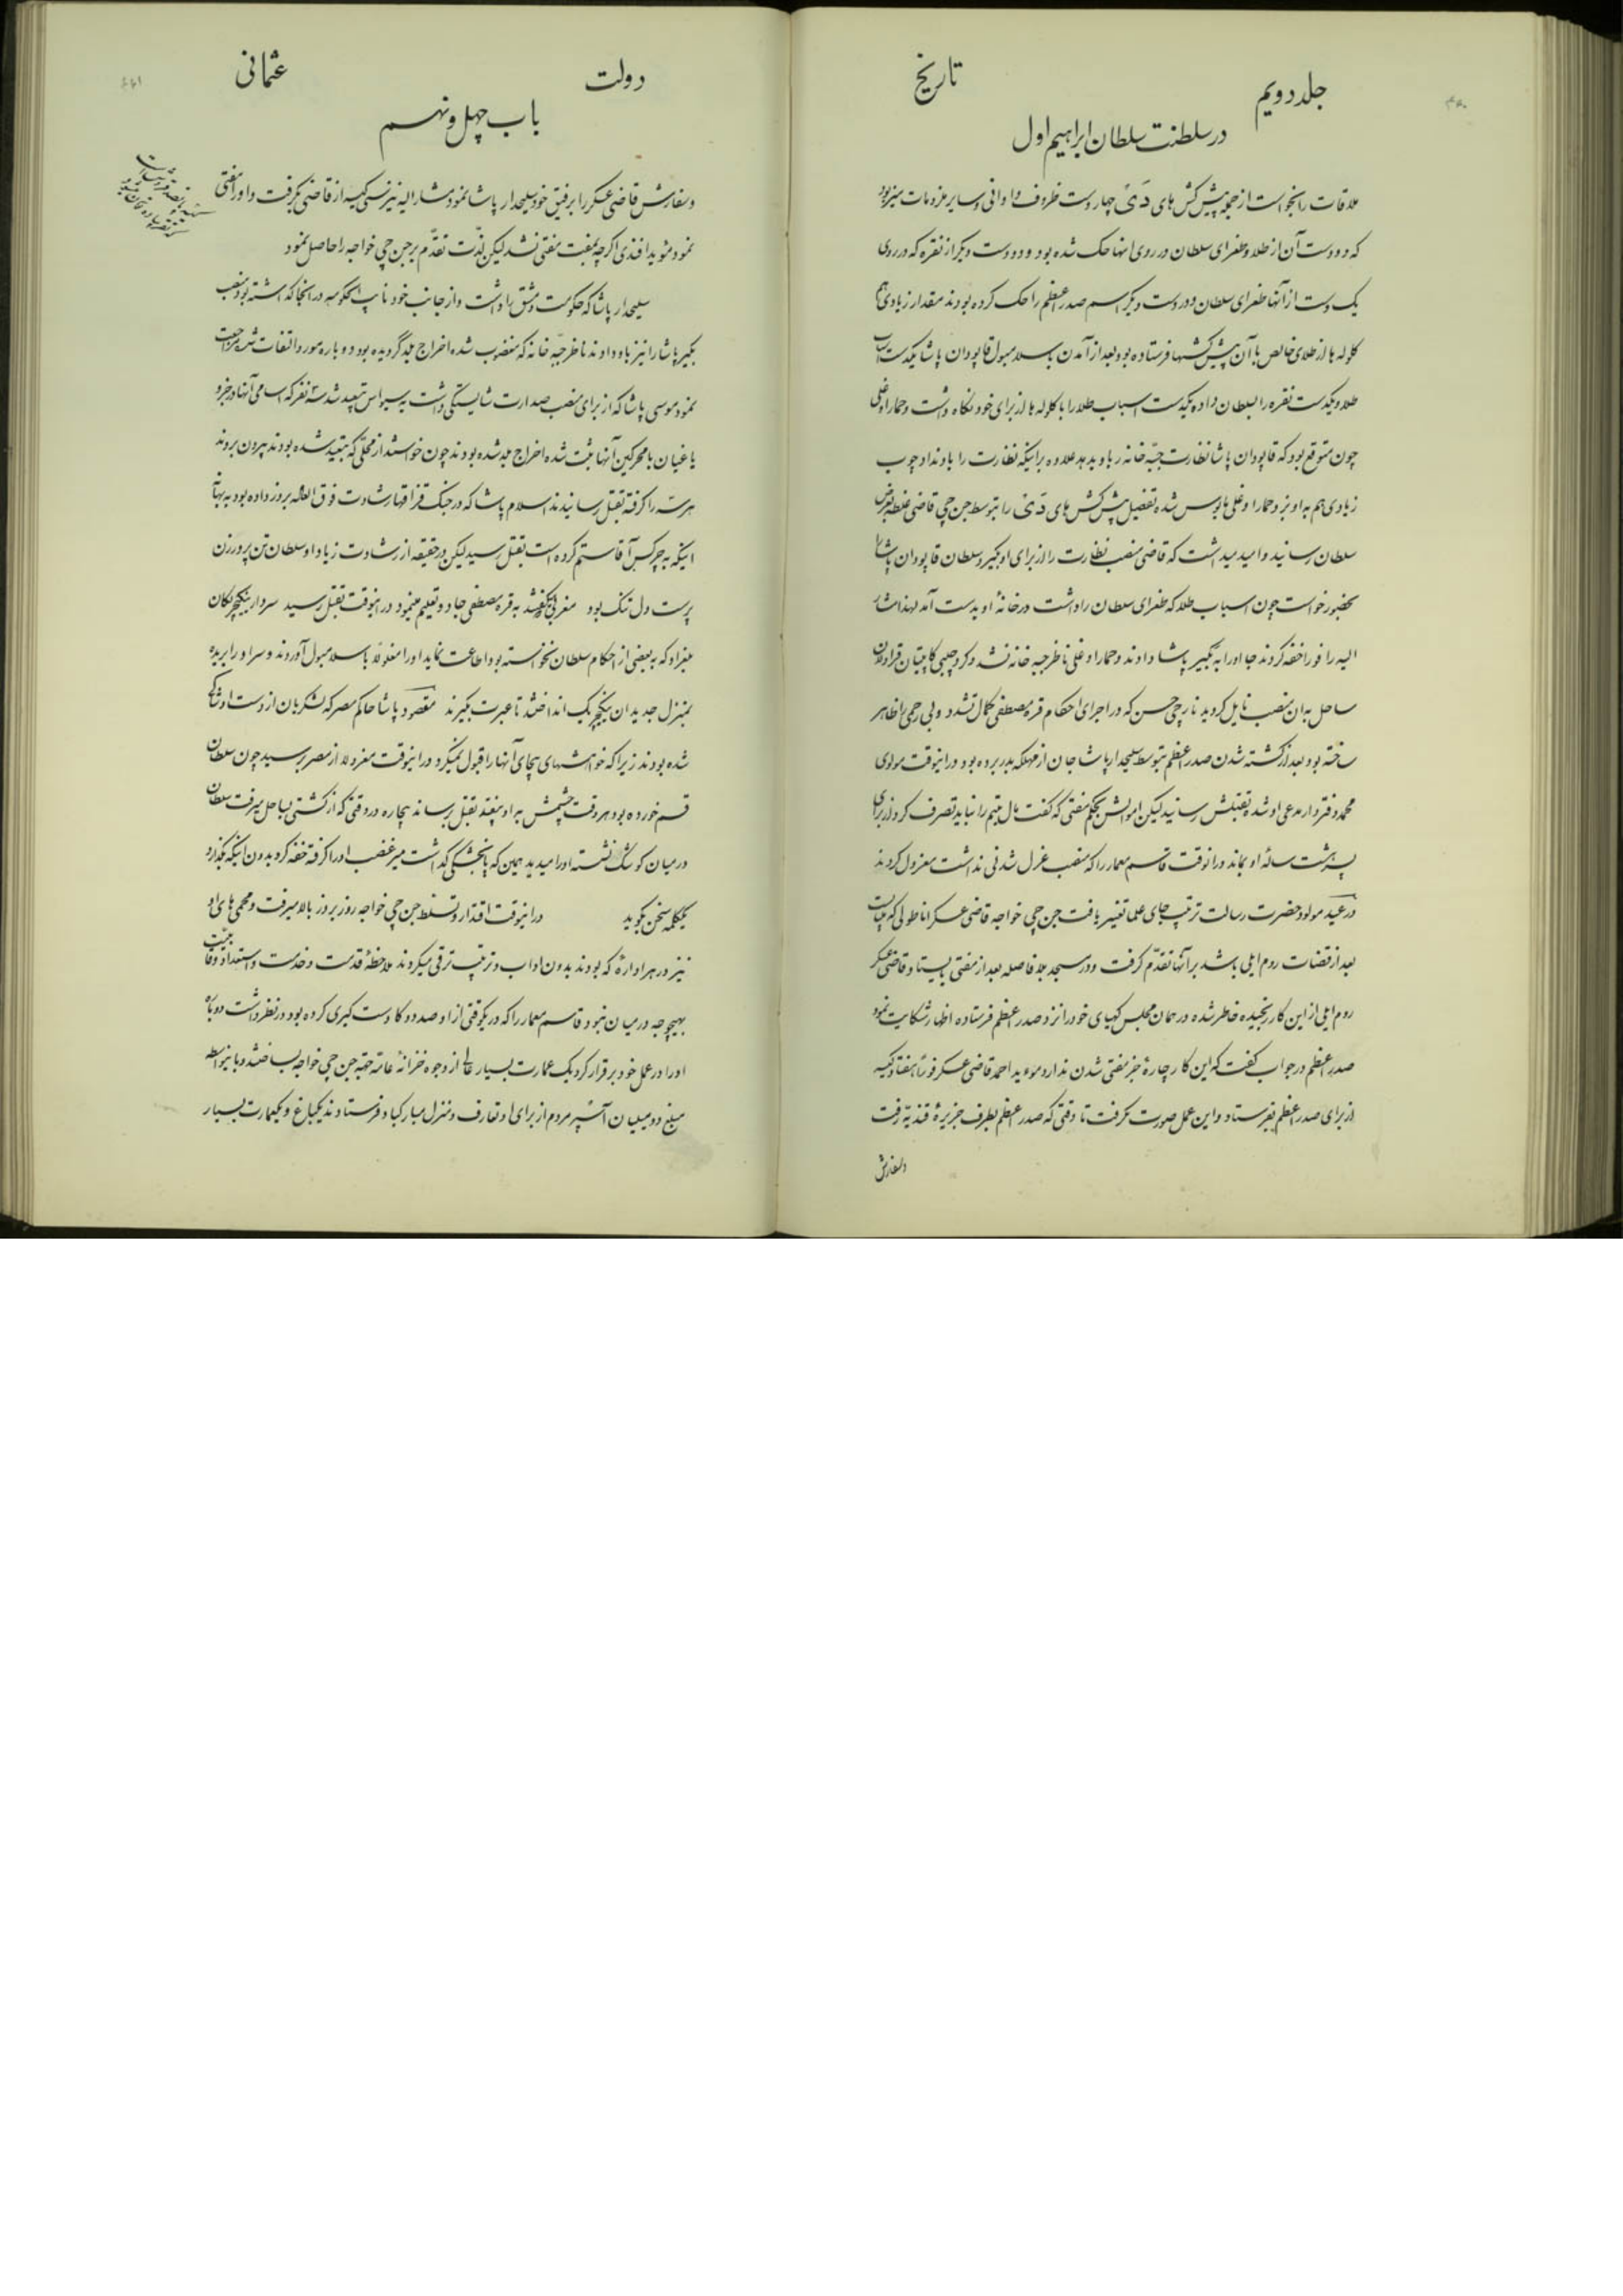 جلد دویم
تاریخ
در سلطنت سلطان ابراهیم اول
ملاقات را نخواست از جمله پیش کش های دَیْ چهار دست ظروف و اوانی و سایر ملزومات میز بود
که دو دست آن از طلا و طغرای سلطان در روی اینها حک شده بود و دو دست دیگر از نقره که در روی
یک دست از آنها طغرای سلطان و در دست دیگر اسم صدر اعظم را حک کرده بودند مقدار زیادی هم
کلوله ها از طلای خالص با آن پیش کشها فرستاده بود بعد از آمدن باسلامبول قاپودان پاشا یکدست اسباب
طلا و یکدست نقره را بسلطان داده یکدست اسباب طلا را با کلوله ها از برای خود نگاه داشت و حمار اوغلی
چون متوقع بود که قاپودان پاشا نظارت جبّه خانه را باو بدهد علاوه بر اینکه نظارت را باو نداد چوب
زیادی هم به او زد حمار اوغلی مایوس شده تفصیل پیش کش های دَیْ را بتوسط جن جی قاضی غلطه بعرض
سلطان رسانید و امید میداشت که قاضی منصب نظارت را از برای او بگیرد سلطان قاپودان پاشا را
بحضور خواست چون اسباب طلا که طغرای سلطان را داشت در خانهٔ او بدست آمد لهذا مشار
الیه را فوراً خفه کردند جا او را به بکیر پاشا دادند و حمار اوغلی ناظر جبه خانه نشد و کرد چلبی کاپیتان قراولان
ساحل به ان منصب نایل کردید نارنجی حسن که در اجرای احکام قره مصطفی کمال تشدد و بی رحمی اظهار
ساخته بود بعد از کشته شدن صدر اعظم بتوسط سلیحدار پاشا جان از مهلکه بدر برده بود در اینوقت مولوی
محمد دفتردار مدعی او شده بقتلش رسانید لیکن اموالش بحکم مفتی که گفت مال یتیم را نباید تصرف کرد از برای
پسر هشت سالهٔ او بماند در انوقت قاسم معمار را که منصب عزل شدنی نداشت معزول کردند
در عید مولود حضرت رسالت ترتیب جای علما تغییر یافت جن جی خواجه قاضی عسکر اناطولی که میبایست
بعد از قضات روم ایلی باشد بر آنها تقدّم گرفت و در مسجد بلا فاصله بعد از مفتی بایستاد قاضی عسکر
روم ایلی از این کار رنجیده خاطر شده در همان مجلس کهیای خود را نزد صدر اعظم فرستاده اظهار شکایت نمود
صدر اعظم در جواب گفت که این کار چارهٔ جز مفتی شدن ندارد موءید احمد قاضی عسکر فوراً هفتاد کیسه
از برای صدر اعظم بفرستاد و این عمل صورت نگرفت تا وقتی که صدر اعظم بطرف جزیرهٔ قندیّه رفت
و سفارش
دولت
عثمانی
باب چهل و نهم
و سفارش قاضی عسکر را برفیق خود سلیحدار پاشا نمود مشار الیه نیز سی کیسه از قاضی بگرفت و او را مفتی
نمود موءید افندی اگرچه بمفت مفتی نشد لیکن لذّت تقدّم بر جن جی خواجه را حاصل نمود
سلیحدار پاشا که حکومت دمشق را داشت و از جانب خود نایب الحکومه در انجا گذاشته بود منصب
بکیر پاشا را نیز باو دادند ناظر جبّه خانه که مغضوب شده اخراج بلد گردیده بود دوباره مورد التفات شده مراجعت
نمود موسی پاشا که از برای منصب صدارت شایستگی داشت به سیواس تبعید شد سه نفر که اسامی آنها در جزو
یاغیان یا محرکین آنها ثبت شده اخراج بلد شده بودند چون خواستند از محلّی که تبعید شده بودند بیرون بروند
هر سه را گرفته بقتل رسانیدند اسلام پاشا که در جنگ قزاقها رشادت فوق العاده بروز داده بود به بهانهٔ
اینکه به چرکس آقا ستم کرده است بقتل رسید لیکن در حقیقه از رشادت زیاد او سلطان تن پرور زن
پرست دل تنگ بود مغربی که گفتند به قره مصطفی جادو تعلیم مینمود در اینوقت بقتل رسید سردار ینگیچریکان
بغداد که به بعضی از احکام سلطان نخواسته بود اطاعت نماید او را مغلولاً باسلامبول آوردند و سر او را بریده
بمنزل جدید ان ینگیچریک انداختند تا عبرت بگیرند مقصود پاشا حاکم مصر که لشکریان از دست او شاکی
شده بودند زیرا که خواهشهای بیجای آنها را قبول نمیکرد در اینوقت معزولا از مصر برسید چون سلطان
قسم خورده بود هر وقت چشمش به او بیفتد بقتل برساند بیچاره در وقتی که از کشتی بساحل میرفت سلطان
در میان کوشک نشسته او را میدید همین که پا بخشکی گذاشت میر غضب او را گرفته خفه کرد بدون اینکه بگذارد
یکلمه سخن بگوید در اینوقت اقتدار و تسلط جن جی خواجه روز بروز بالا میرفت و محمی های او
نیز در هر اداره که بودند بدون اداب و ترتیب ترقی میکردند ملاحظهٔ قدمت و خدمت و استعداد و قابلیت
بهیچوجه در میان نبود قاسم معمار را که در یکوقتی از او صد دوکا دست گیری کرده بود در نظر داشت دوباره
او را در عمل خود برقرار کرد یک عمارت بسیار عالی از وجوه خزانهٔ عامّه جهة جن جی خواجه بساختند و باینواسطه
مبلغ دو میلیان آسپر مردم از برای او تعارف و منزل مبارکباد فرستادند یکباغ و یکعمارت بسیار